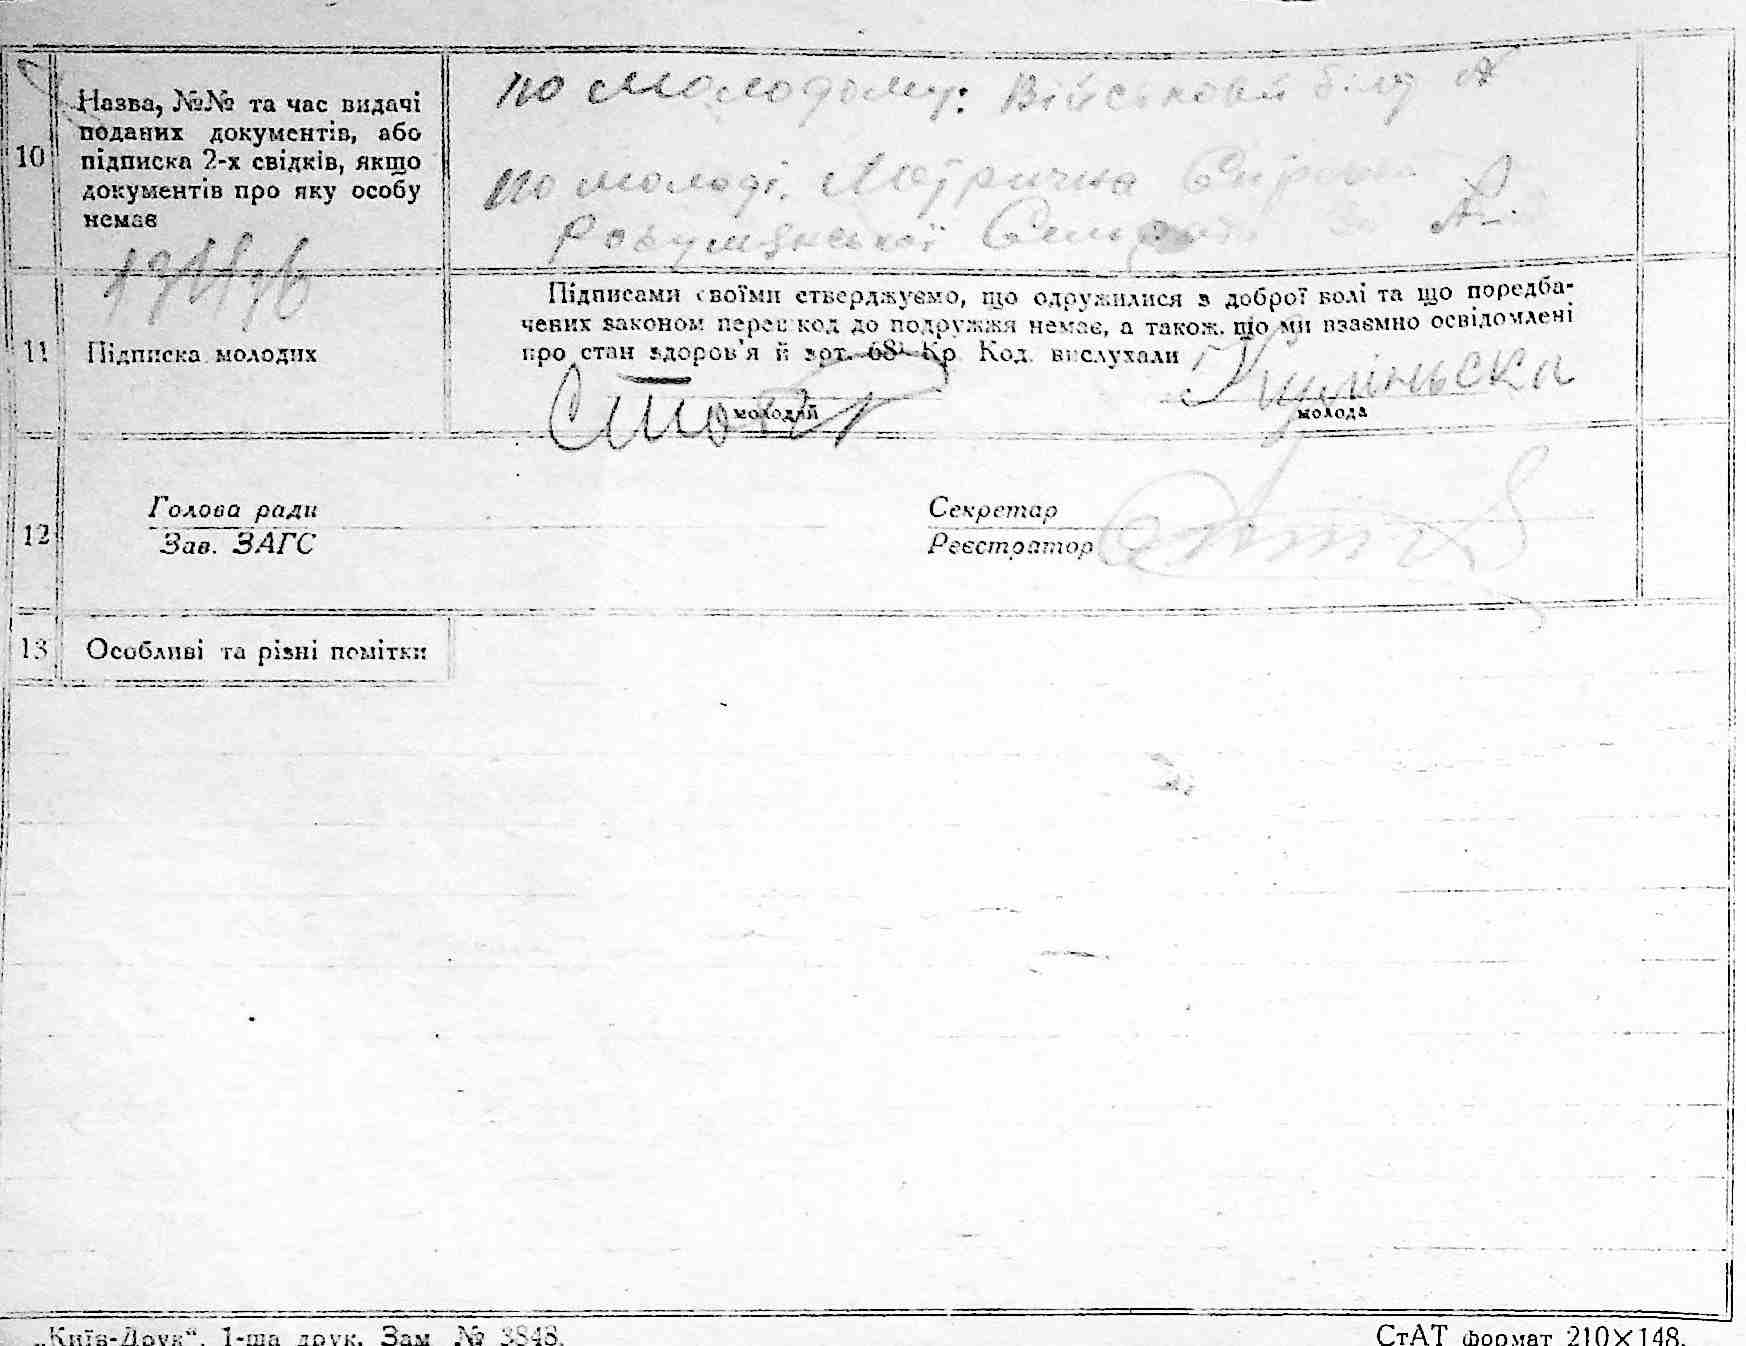 10
Назва, №№ та час видачі
поданих документів, або
підписка 2-х свідків, якщо
документів про яку особу
немає
по молодому: Військовий білу
по молоді. Метрична
11
Підписка молодих
Підписами своїми стверджуємо, що одружилися з доброї волі та що поредба-
чених законом перешкод до подружжя немає, а також, що ми взаємно освідомлені
про стан здоров'я й арт. 68¹ Кр. Код. вислухали
молодий
молода
12
Голова ради
Зав. ЗАГС
Секретар
Реєстратор
13
Особливі та різні помітки
„Київ-Друк“. 1-ша друк. Зам. № 3848.
СтАТ формат 210×148.